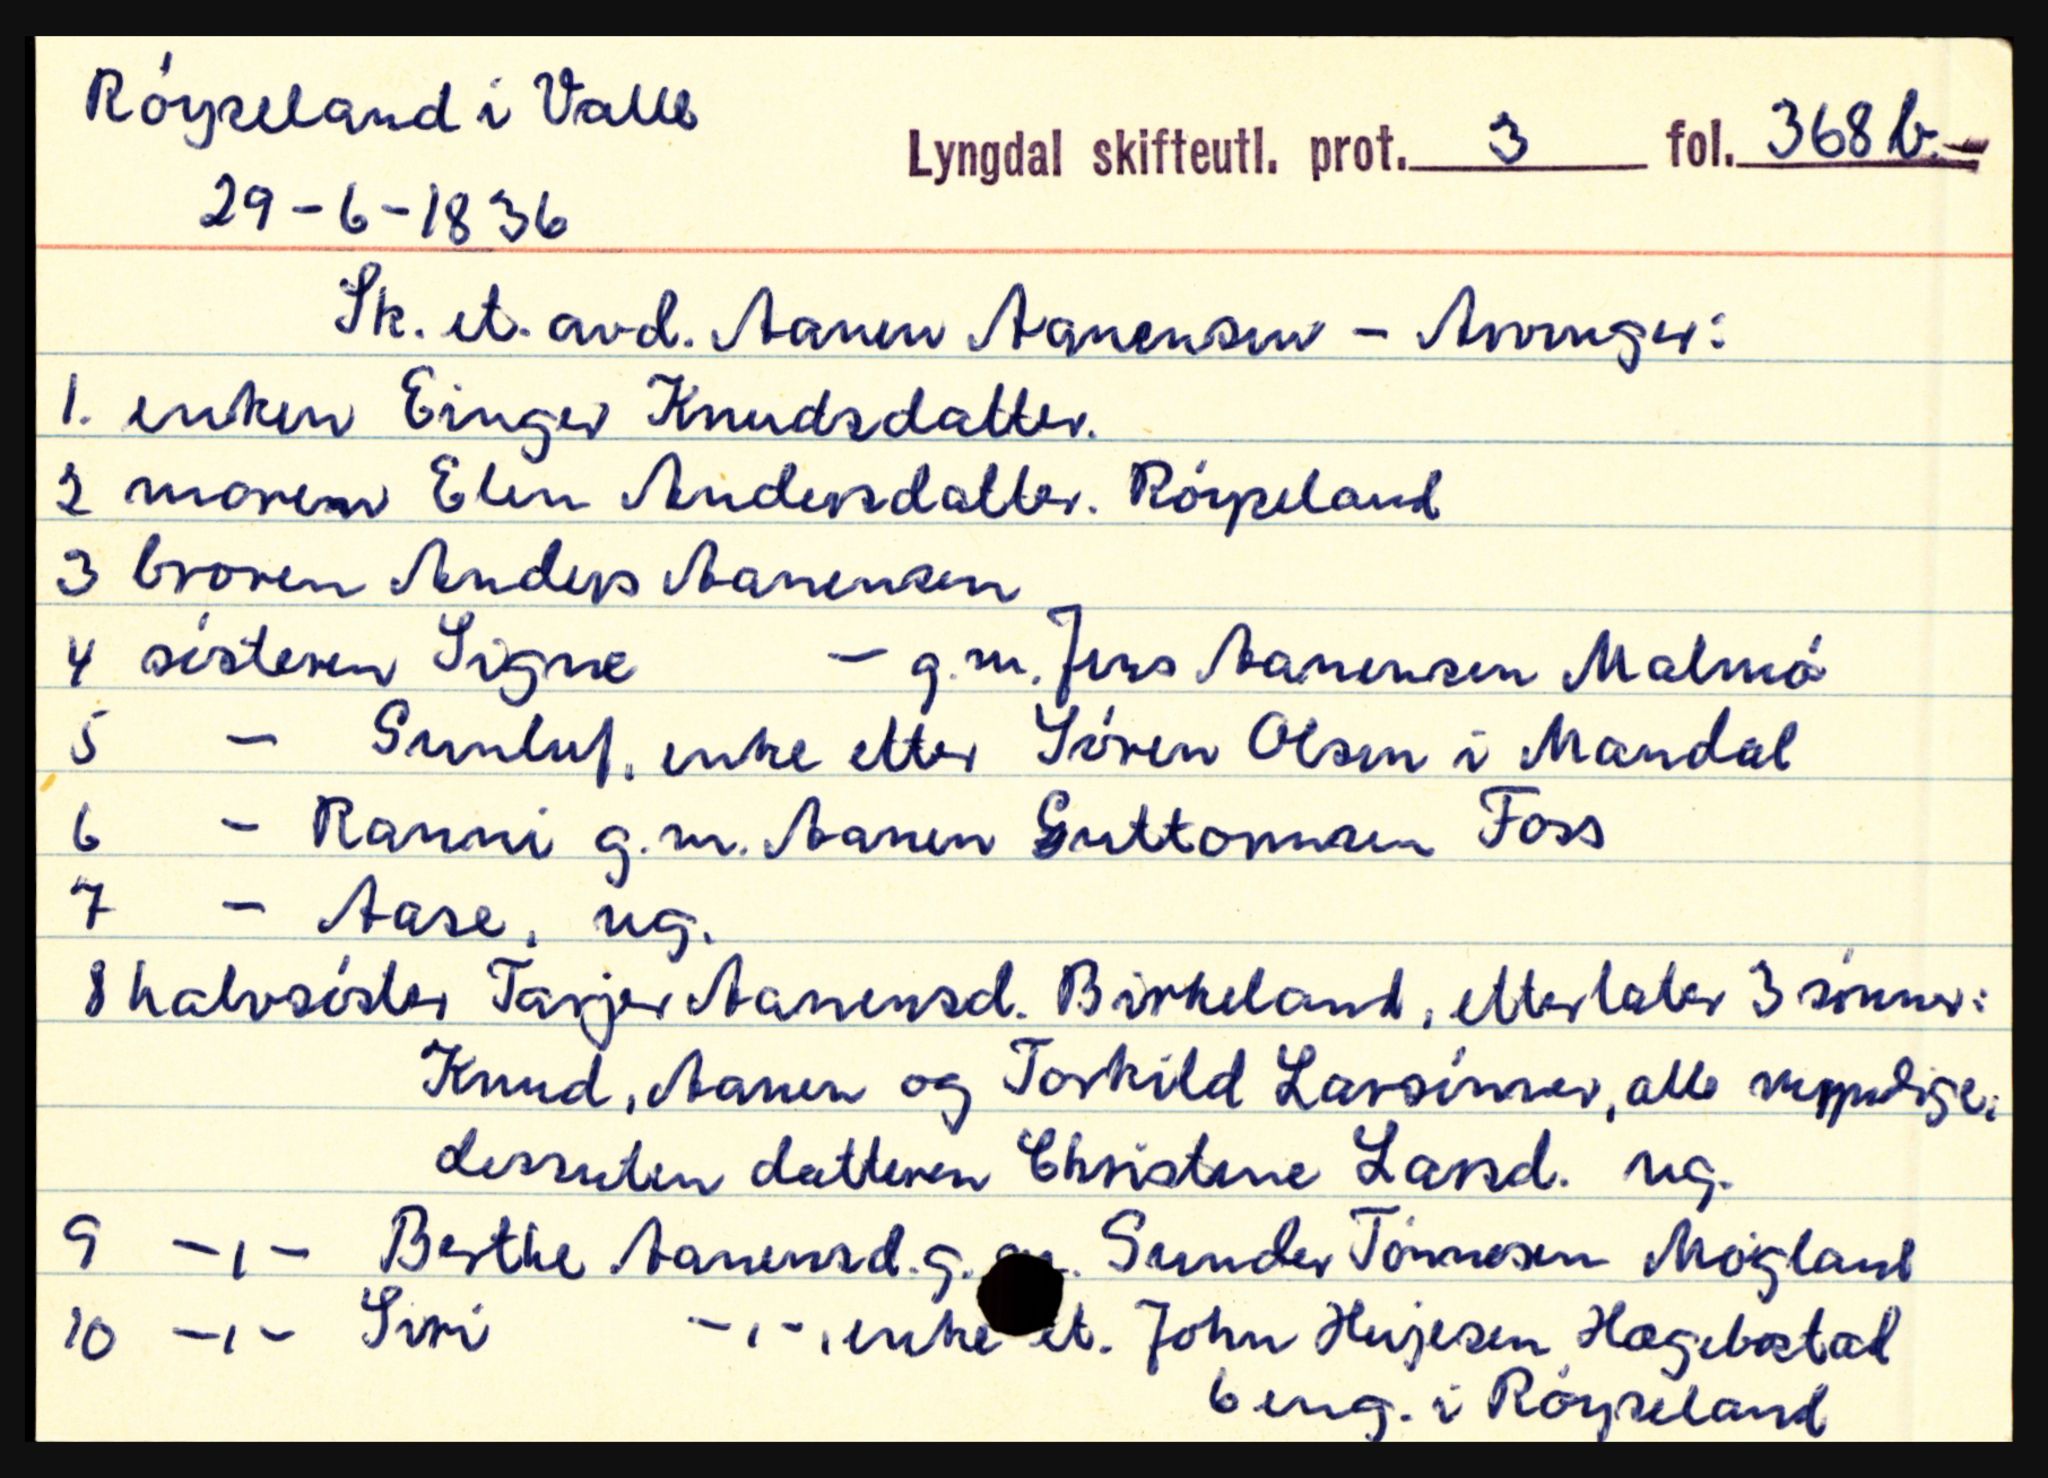 Röyseland i Valle
Lyngdal skifteutl. prot. 3 fol. 368 b.-
29-6-1836
Sk. et. avd. Aanen Aanensen - Arvinger:
1. enken Einger Knudsdatter.
2 moren Elen Andersdatter. Röyseland
3 broren Anders Aanensen
4 sösteren Signe - g.m. Jens Aanensen Malmö
5 - Gunluf, enke etter Sören Olsen i Mandal
6 - Ranni g.m. Aanen Guttormsen Foss
7 - Aase, ug.
8 halvsöster Tarjer Aanensd. Birkeland, etterlater 3 sönner:
Knud, Aanen og Torkild Larsönner, alle myndige,
dessuten datteren Christene Larsd. ug.
9 -,- Berthe Aanensd. g. m. Gunder Tönnesen Mögland
10 -,- Siri -,-, enke et. John Hujesen Hægebostad
6 eng. i Röyseland